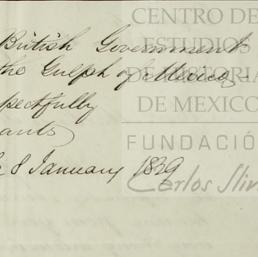 CENTRO DE
British Government
ESTUDIOS
the Gulph of Mexico -
DE HISTORIA
DE MEXICO
pectfully
FUNDACIÓ
ants
8 January 1839
Carlos Slim